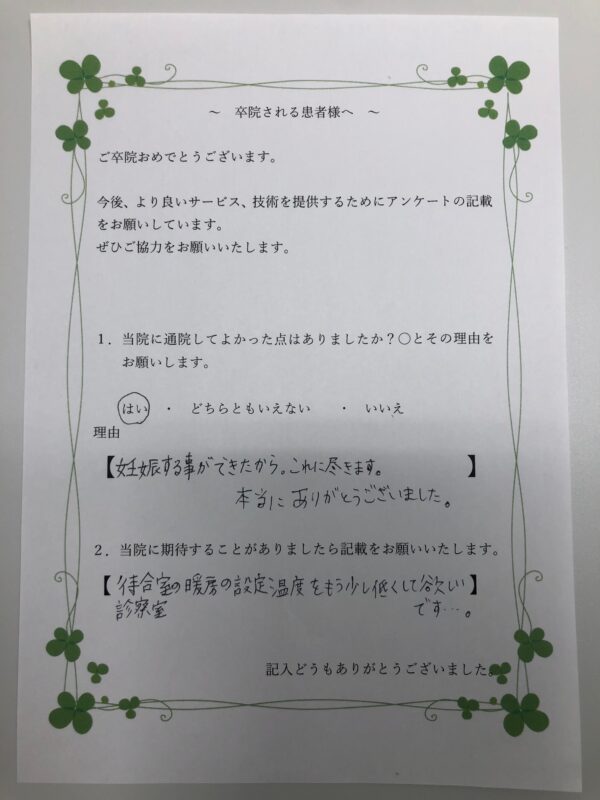 ～ 卒院される患者様へ ～
ご卒院おめでとうございます。
今後、より良いサービス、技術を提供するためにアンケートの記載
をお願いしています。
ぜひご協力をお願いいたします。
１．当院に通院してよかった点はありましたか？〇とその理由を
お願いします。
はい ・ どちらともいえない ・ いいえ
理由
【妊娠する事ができたから。これに尽きます。 】
本当にありがとうございました。
２．当院に期待することがありましたら記載をお願いいたします。
【待合室の暖房の設定温度をもう少し低くして欲しい】
診察室 です…。
記入どうもありがとうございました。